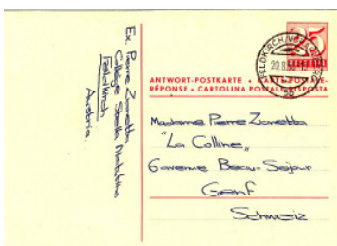 Ex Pierre Zanetta
Collège Stella Matutina
Feldkirch
Austria
25
FELDKIRCH
20.8.
ANTWORT-POSTKARTE + CARTE POSTALE-
RÉPONSE + CARTOLINA POSTALE RISPOSTA
Madame Pierre Zanetta
"La Colline"
6 avenue Beau-Sejour
Genf
Schweiz